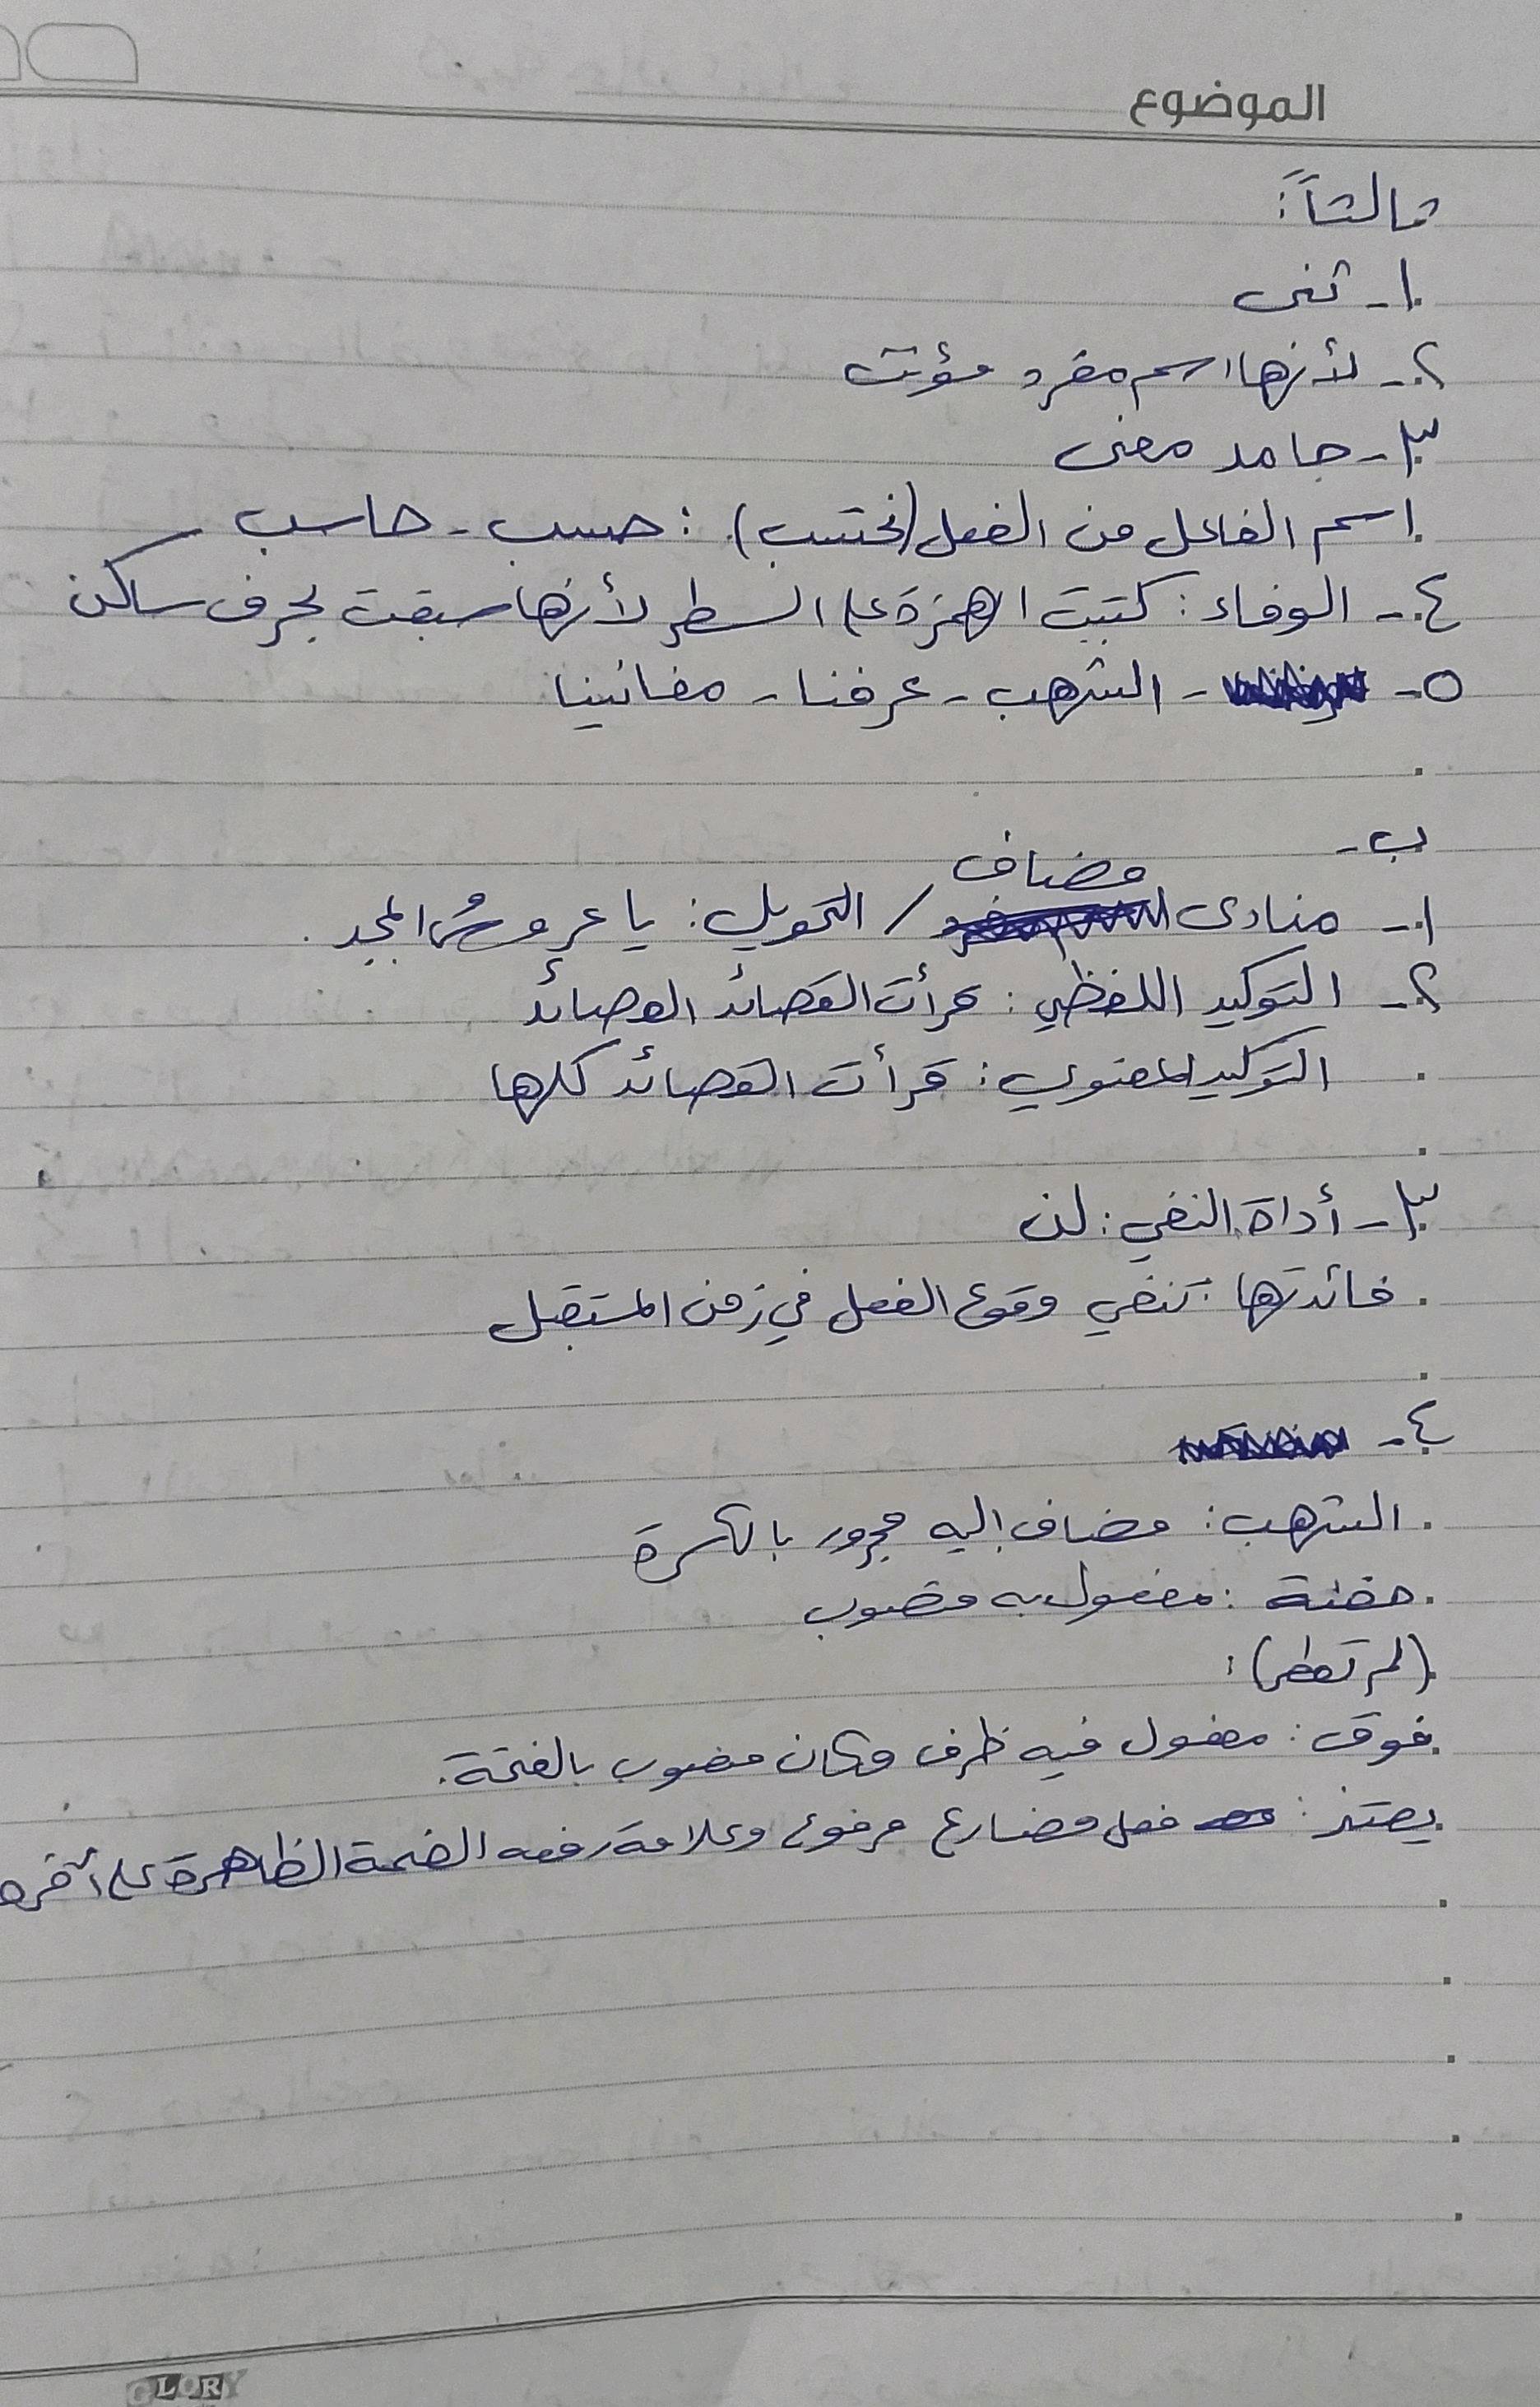 الموضوع
ثالثاً:
١- ثنى
٢- لأنها اسم مفرد مؤنث
٣- جامد معنى
اسم الفاعل من الفعل (نحتسب): حسب - حاسب
٤- الوفاء: كتبت الهمزة على السطر لأنها سبقت بحرف ساكن
٥- - الشهب - عرفنا - مغانينا
ب-
مضاف
١- منادى / التحويل: يا عروسُ المجد.
٢- التوكيد اللفظي: قرأت القصائد القصائد
التوكيد المعنوي: قرأت القصائد كلها
٣- أداة النفي: لن
فائدتها: تنفي وقوع الفعل في زمن المستقبل
٤-
الشهب: مضاف إليه مجرور بالكسرة
حفنة: مفعول به منصوب
(لم تعطر):
فوق: مفعول فيه ظرف مكان منصوب بالفتحة.
فعل مضارع مرفوع وعلامة رفعه الضمة الظاهرة على آخره
GLORY